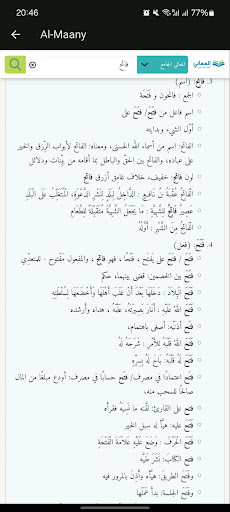 20:46 77%
Al-Maany
المعاني
المعاني الجامع
فاتح
3. فَاتِح: (اسم)
الجمع : فاتحون و فَتَحَة
اسم فاعل من فتَحَ/ فتَحَ على
أوّل الشيء وبدايته
الفاتح: اسم من أسماء الله الحسنى، ومعناه: الفاتح لأبواب الرِّزق والخير
على عباده، والفاتح بين الحق والباطل بما أقامه من بيِّنات ودلائل
لون فاتِح: خفيف، خلاف غامق أزرق فاتح
الفَاتِحُ عُقْبَةُ بْنُ نَافِعٍ : الدَّاخِلُ لِبِلَدٍ لِنَشْرِ الدَّعْوَةِ، الْمُتَغَلِّبُ عَلَى الْبَلَدِ
عصير فَاتِحٌ لِلشَّهِيَّةِ : مَا يَجْعَلُ الشَّهِيَّةَ مُتَقَبِّلَةً لِلطَّعَامِ
الْفَاتِحُ مِنَ الشَّهْرِ : أَوَّلُهُ
4. فَتَحَ: (فعل)
فتَحَ / فتَحَ على يَفتَح ، فَتْحًا ، فهو فاتِح ، والمفعول مَفْتوح - للمتعدِّي
فَتَحَ بَيْنَ الخصمين: قضى بينهما، حكم
فَتَحَ الْبِلَادَ : دَخَلَهَا بَعْدَ أَنْ غَلَبَ أَهْلَهَا وَأَخْضَعَهَا لِسُلْطَتِهِ
فَتَحَ اللَّهُ عَلَيْهِ : أَنَارَ بَصِيرَتَهُ، عَلَّمَهُ ، هداه وأرشده
فَتَحَ أذنَيْه: أصغى باهتمام،
فَتَحَ اللَّهُ قَلْبَهُ لِلأَمْرِ : شَرَحَهُ لَهُ
فَتَحَ لَهُ قَلْبَهُ: بَاحَ لَهُ بِسِرِّهِ
فتَحَ اعتمادًا في مصرف/ فتَحَ حسابًا في مصرف: أودع مبلغًا من المال
صالحًا للسحب منه،
فتَحَ على القارئ: لقَّنه ما نَسِيَهُ فقرأه
فَتَحَ عليه: هيَّأ له سبل الخير
فَتَحَ الْحَرْفَ : وَضَعَ عَلَيْهِ عَلَامَةَ الْفَتْحَةِ
فَتَحَ الكتابَ: نَشَرَ طَيَّهُ
وفَتَحَ الطريقَ: هيَّأه وأَذِنَ بالمرور فيه
وفَتَحَ الجلسةَ: بدأ عَمَلَهَا